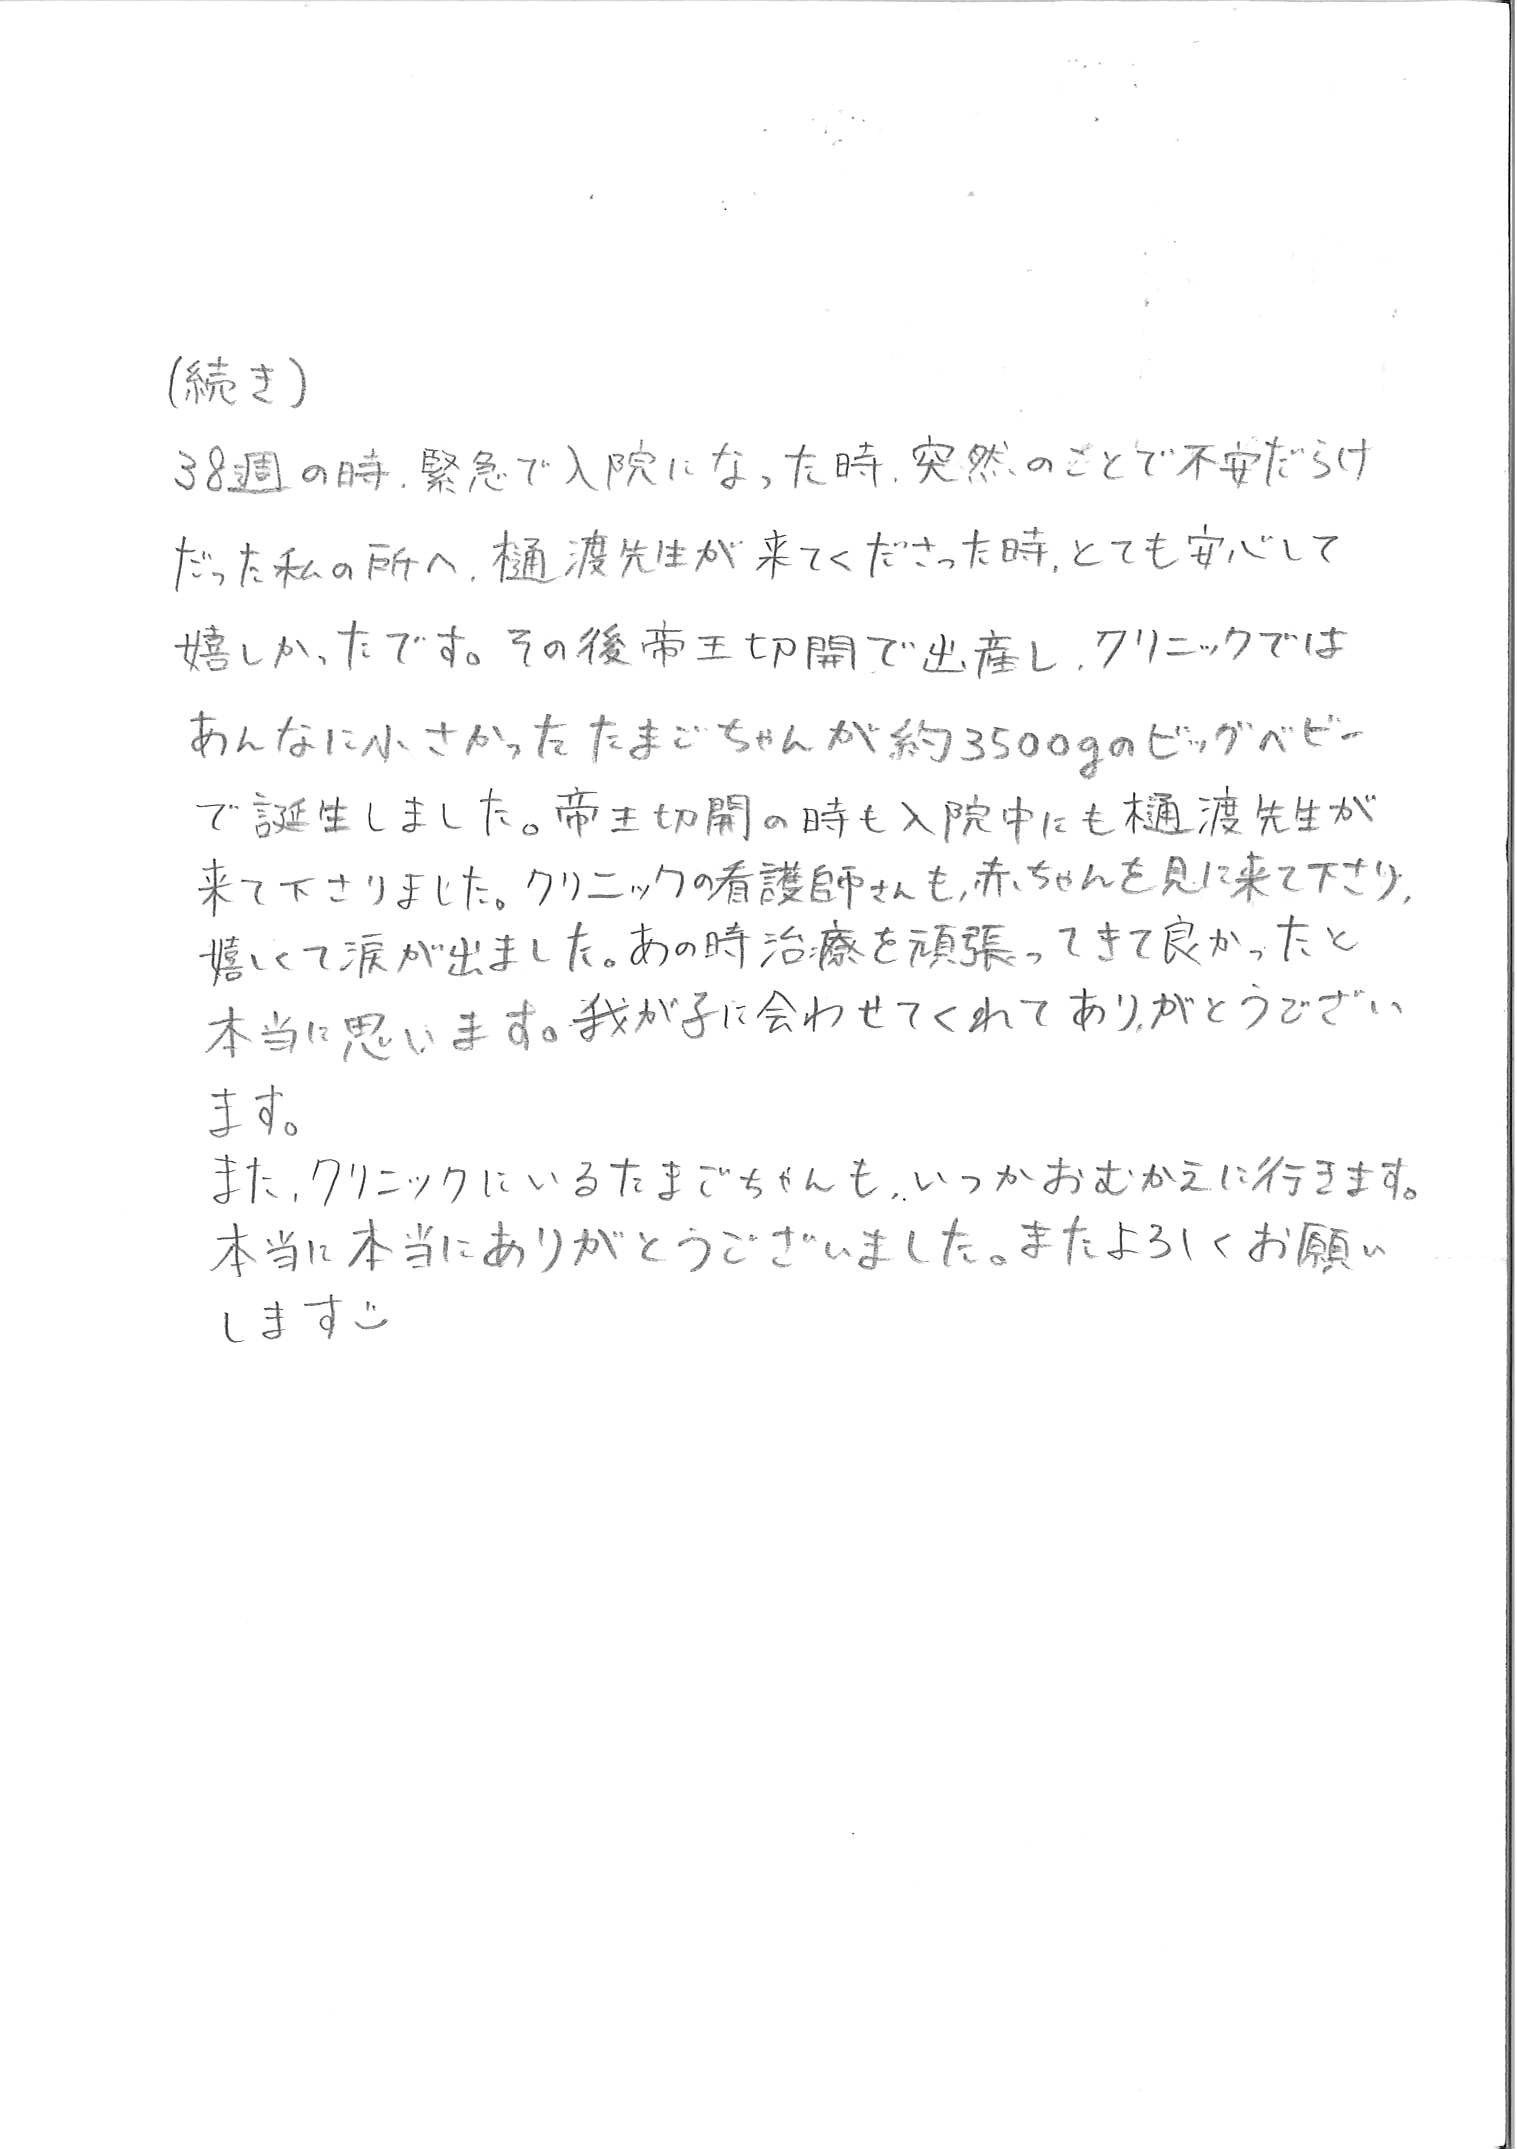 (続き)
38週の時、緊急で入院になった時、突然のことで不安だらけ
だった私の所へ、樋渡先生が来てくださった時、とても安心して
嬉しかったです。その後帝王切開で出産し、クリニックでは
あんなに小さかったたまごちゃんが約3500gのビッグベビー
で誕生しました。帝王切開の時も入院中にも樋渡先生が
来て下さりました。クリニックの看護師さんも、赤ちゃんを見に来て下さり、
嬉しくて涙が出ました。あの時治療を頑張ってきて良かったと
本当に思います。我が子に会わせてくれてありがとうござい
ます。
また、クリニックにいるたまごちゃんも、いつかおむかえに行きます。
本当に本当にありがとうございました。またよろしくお願い
します